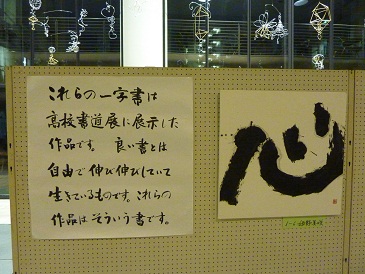 これらの一字書は
高校書道展に展示した
作品です。良い書とは
自由で伸び伸びしていて
生きているものです。これらの
作品はそういう書です。
心